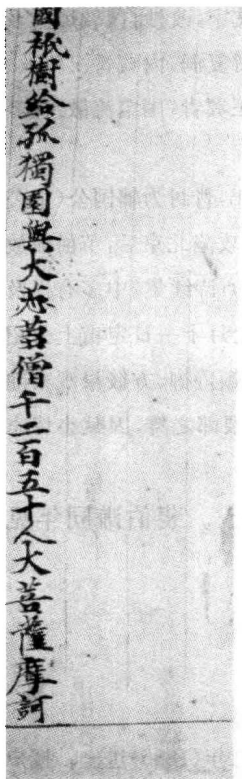 國祇樹給孤獨園與大苾蒭僧千二百五十人大菩薩摩訶